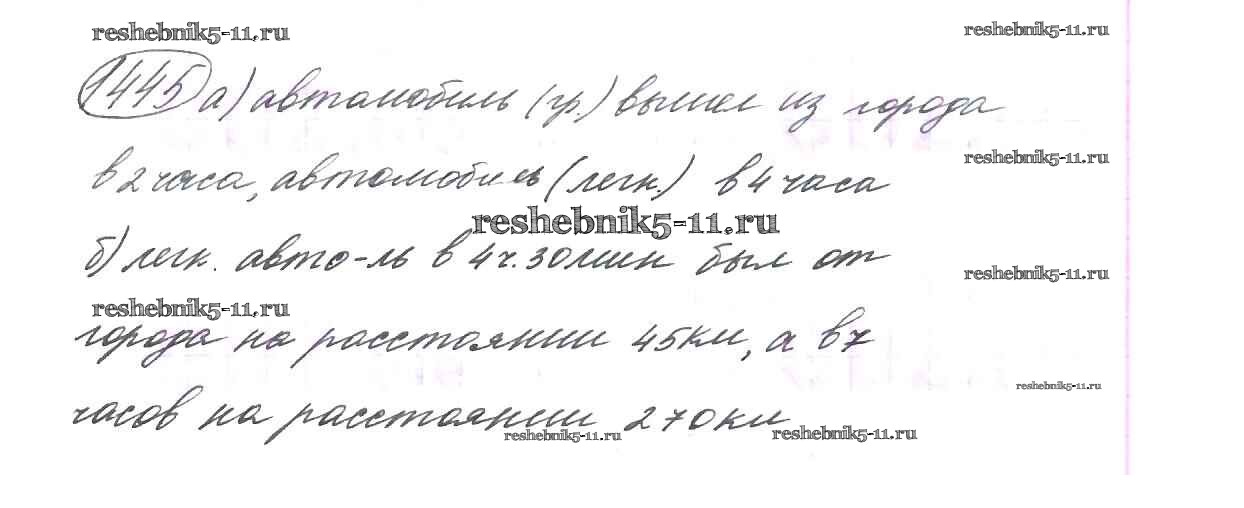 reshebnik5-11.ru
reshebnik5-11.ru
1445 а) автомобиль (гр.) вышел из города
reshebnik5-11.ru
в 2 часа, автомобиль (легк.) в 4 часа
reshebnik5-11.ru
б) легк. авто-ль в 4 ч. 30 мин был от
reshebnik5-11.ru
reshebnik5-11.ru
города на расстоянии 45 км, а в 7
reshebnik5-11.ru
часов на расстоянии 270 км
reshebnik5-11.ru
reshebnik5-11.ru